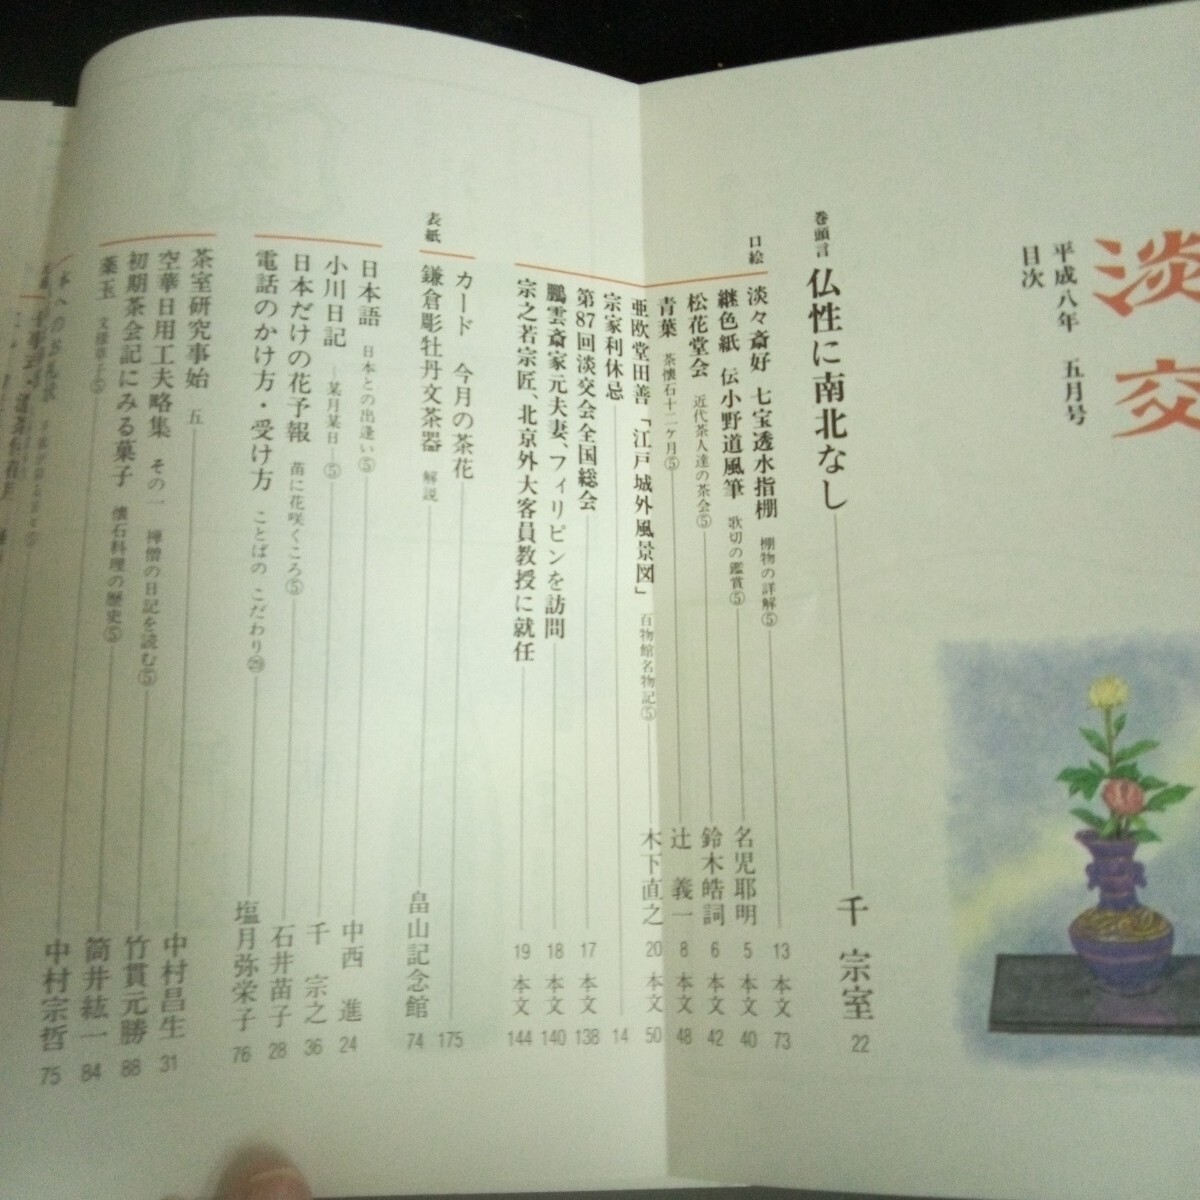 淡交
平成八年 五月号
目次
巻頭言 仏性に南北なし 千 宗室 22
口絵
淡々斎好 七宝透水指棚 棚物の詳解⑤ 13 本文 73
継色紙 伝小野道風筆 歌切の鑑賞⑤ 名児耶明 5 本文 40
松花堂会 近代茶人達の茶会⑤ 鈴木皓詞 6 本文 42
青葉 茶懐石十二ヶ月⑤ 辻 義一 8 本文 48
亜欧堂田善「江戸城外風景図」 百物館名物記⑤ 木下直之 20 本文 50
宗家利休忌 14
第87回淡交会全国総会 17 本文 138
鵬雲斎家元夫妻、フィリピンを訪問 18 本文 140
宗之若宗匠、北京外大客員教授に就任 19 本文 144
カード 今月の茶花 175
表紙 鎌倉彫牡丹文茶器 解説 畠山記念館 74
日本語 日本との出逢い⑤ 中西 進 24
小川日記 ―某月某日―⑤ 千 宗之 36
日本だけの花予報 苗に花咲くころ⑤ 石井苗子 28
電話のかけ方・受け方 ことばの こだわり㉙ 塩月弥栄子 76
茶室研究事始 五 中村昌生 31
空華日用工夫略集 その一 禅僧の日記を読む⑤ 竹貫元勝 88
初期茶会記にみる菓子 懐石料理の歴史⑤ 筒井紘一 84
薬玉 文様草子⑤ 中村宗哲 75